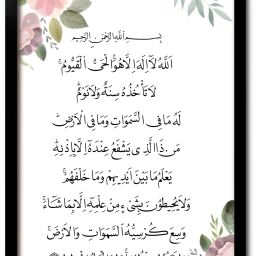 بِسْمِ اللّٰهِ الرَّحْمٰنِ الرَّحِيْمِ
اَللّٰهُ لَآ اِلٰهَ اِلَّا هُوَ الْحَيُّ الْقَيُّوْمُ ۚ
لَا تَأْخُذُهٗ سِنَةٌ وَّلَا نَوْمٌ ؕ
لَهٗ مَا فِى السَّمٰوٰتِ وَمَا فِى الْاَرْضِ ؕ
مَنْ ذَا الَّذِىْ يَشْفَعُ عِنْدَهٗٓ اِلَّا بِاِذْنِهٖ ؕ
يَعْلَمُ مَا بَيْنَ اَيْدِيْهِمْ وَمَا خَلْفَهُمْ ۚ
وَلَا يُحِيْطُوْنَ بِشَىْءٍ مِّنْ عِلْمِهٖٓ اِلَّا بِمَا شَآءَ ۚ
وَسِعَ كُرْسِيُّهُ السَّمٰوٰتِ وَالْاَرْضَ ۚ